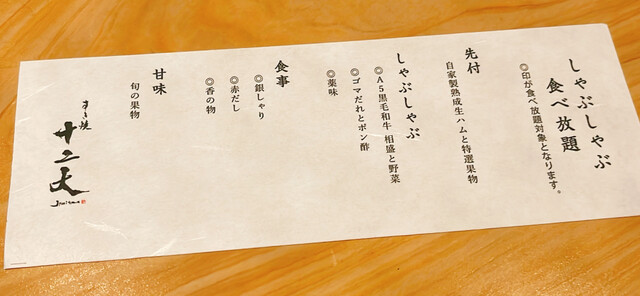 しゃぶしゃぶ
食べ放題
◎印が食べ放題対象となります。
先付
自家製熟成生ハムと特選果物
しゃぶしゃぶ
◎A5黒毛和牛 相盛と野菜
◎ゴマだれとポン酢
◎薬味
食事
◎銀しゃり
◎赤だし
◎香の物
甘味
旬の果物
すき焼
十二天